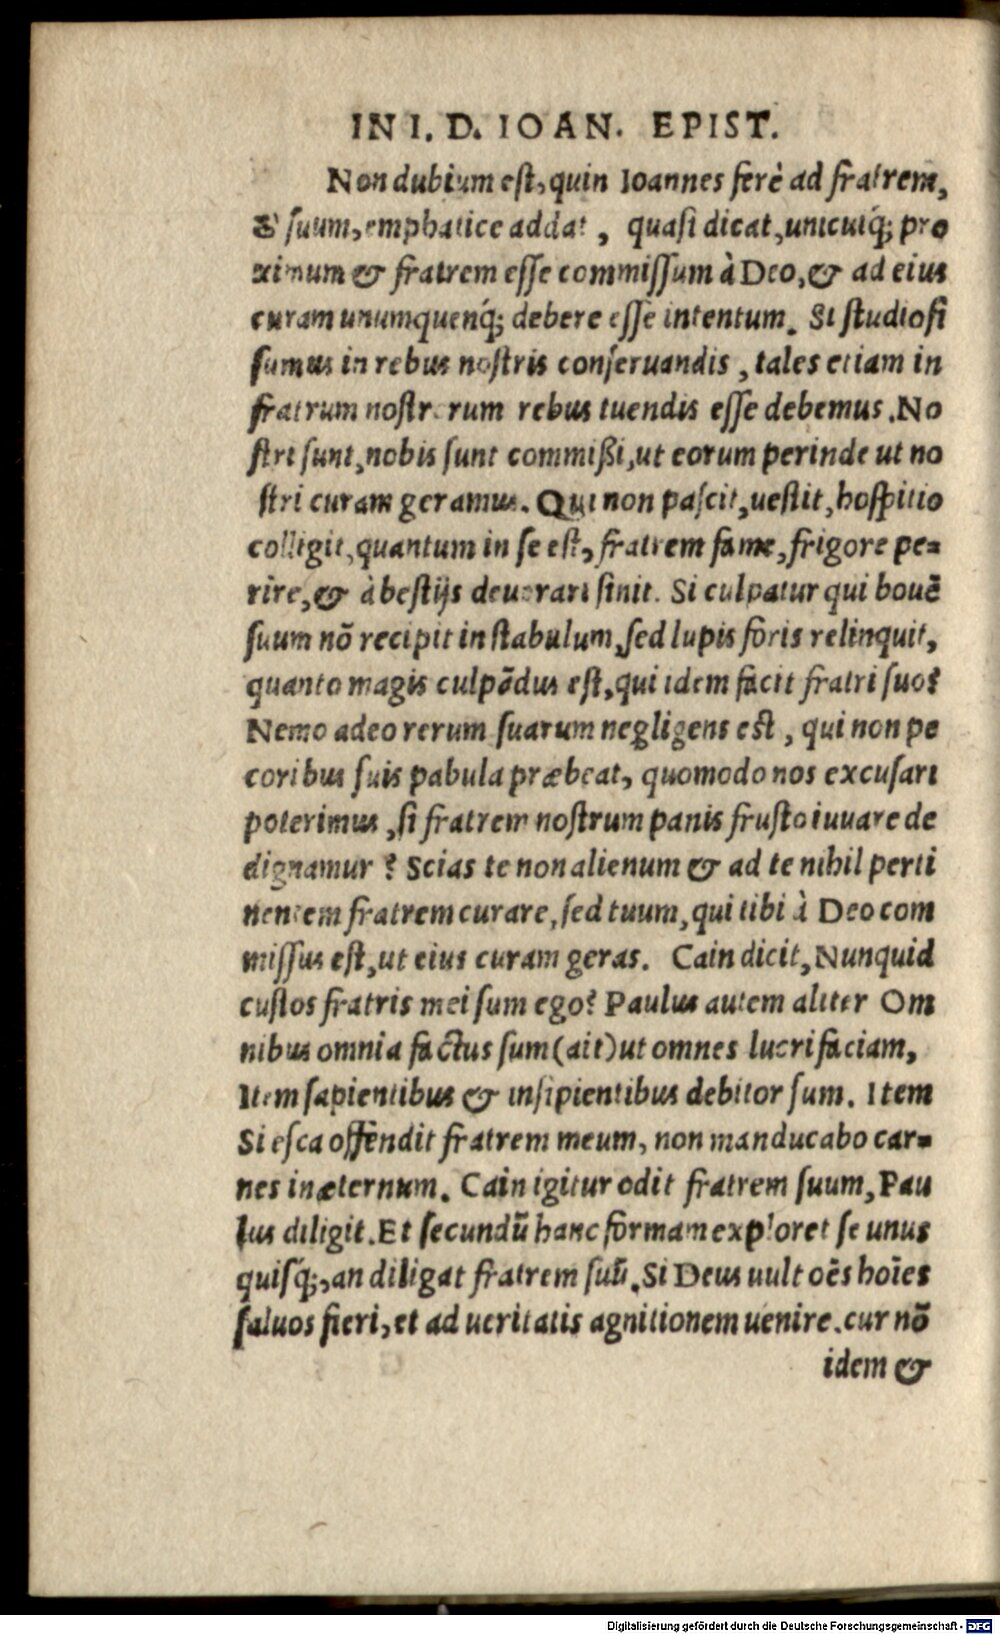 IN I. D. IOAN. EPIST.
Non dubium est, quin Ioannes ferè ad fratrem,
& suum, emphatice addat, quasi dicat, unicuiq́; pro
ximum & fratrem esse commissum à Deo, & ad eius
curam unumquenq́; debere esse intentum. Si studiosi
sumus in rebus nostris conseruandis, tales etiam in
fratrum nostrorum rebus tuendis esse debemus. No
stri sunt, nobis sunt commißi, ut eorum perinde ut no
stri curam geramus. Qui non pascit, uestit, hospitio
colligit, quantum in se est, fratrem fame, frigore pe=
rire, & à bestijs deuorari sinit. Si culpatur qui bouē
suum nō recipit in stabulum, sed lupis foris relinquit,
quanto magis culpādus est, qui idem facit fratri suo?
Nemo adeo rerum suarum negligens est, qui non pe
coribus suis pabula præbeat, quomodo nos excusari
poterimus, si fratrem nostrum panis frusto iuuare de
dignamur? Scias te non alienum & ad te nihil perti
nentem fratrem curare, sed tuum, qui tibi à Deo com
missus est, ut eius curam geras. Cain dicit, Nunquid
custos fratris mei sum ego? Paulus autem aliter Om
nibus omnia factus sum (ait) ut omnes lucrifaciam,
Item sapientibus & insipientibus debitor sum. Item
Si esca offendit fratrem meum, non manducabo car=
nes in æternum. Cain igitur odit fratrem suum, Pau
lus diligit. Et secundū hanc formam exploret se unus
quisq́;, an diligat fratrem suū. Si Deus uult oēs hoīes
saluos fieri, et ad ueritatis agnitionem uenire. cur nō
idem &
Digitalisierung gefördert durch die Deutsche Forschungsgemeinschaft - DFG